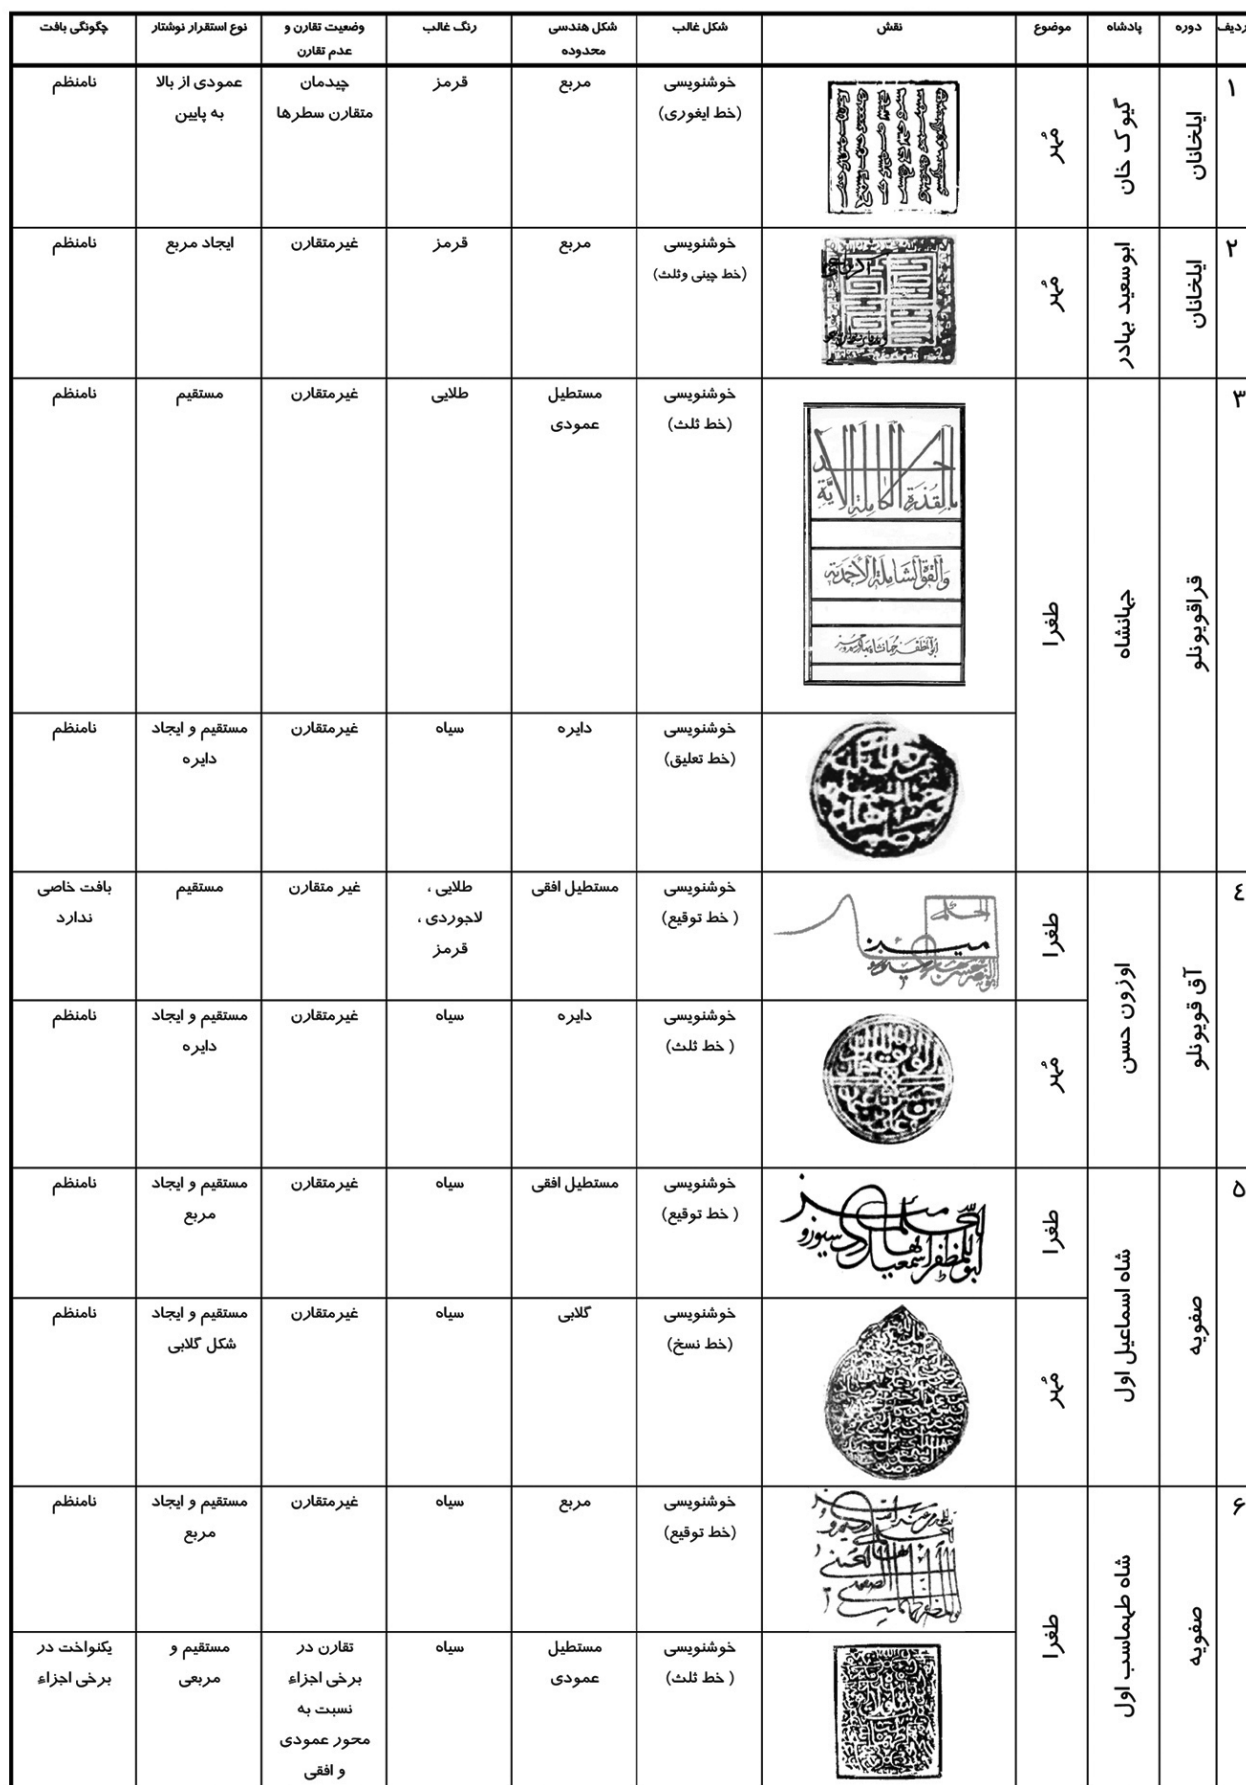 ردیف دوره پادشاه موضوع نقش شکل غالب شکل هندسی محدوده رنگ غالب وضعیت تقارن و عدم تقارن نوع استقرار نوشتار چگونگی بافت
۱ ایلخانان گیوک خان مُهر خوشنویسی (خط ایغوری) مربع قرمز چیدمان متقارن سطرها عمودی از بالا به پایین نامنظم
۲ ایلخانان ابوسعید بهادر مُهر خوشنویسی (خط چینی وثلث) مربع قرمز غیرمتقارن ایجاد مربع نامنظم
۳ قراقویونلو جهانشاه طغرا خوشنویسی (خط ثلث) مستطیل عمودی طلایی غیرمتقارن مستقیم نامنظم
بالقدرة الکاملة الأ یَّة
والقوة الشاملة الأحمدیة
خوشنویسی (خط تعلیق) دایره سیاه غیرمتقارن مستقیم و ایجاد دایره نامنظم
٤ آق قویونلو اوزون حسن طغرا خوشنویسی ( خط توقیع) مستطیل افقی طلایی ، لاجوردی ، قرمز غیر متقارن مستقیم بافت خاصی ندارد
مُهر خوشنویسی ( خط ثلث) دایره سیاه غیرمتقارن مستقیم و ایجاد دایره نامنظم
۵ صفویه شاه اسماعیل اول طغرا خوشنویسی ( خط توقیع) مستطیل افقی سیاه غیرمتقارن مستقیم و ایجاد مربع نامنظم
مُهر خوشنویسی (خط نسخ) گلابی سیاه غیرمتقارن مستقیم و ایجاد شکل گلابی نامنظم
۶ صفویه شاه طهماسب اول طغرا خوشنویسی (خط توقیع) مربع سیاه غیرمتقارن مستقیم و ایجاد مربع نامنظم
خوشنویسی ( خط ثلث) مستطیل عمودی سیاه تقارن در برخی اجزاء نسبت به محور عمودی و افقی مستقیم و مربعی یکنواخت در برخی اجزاء